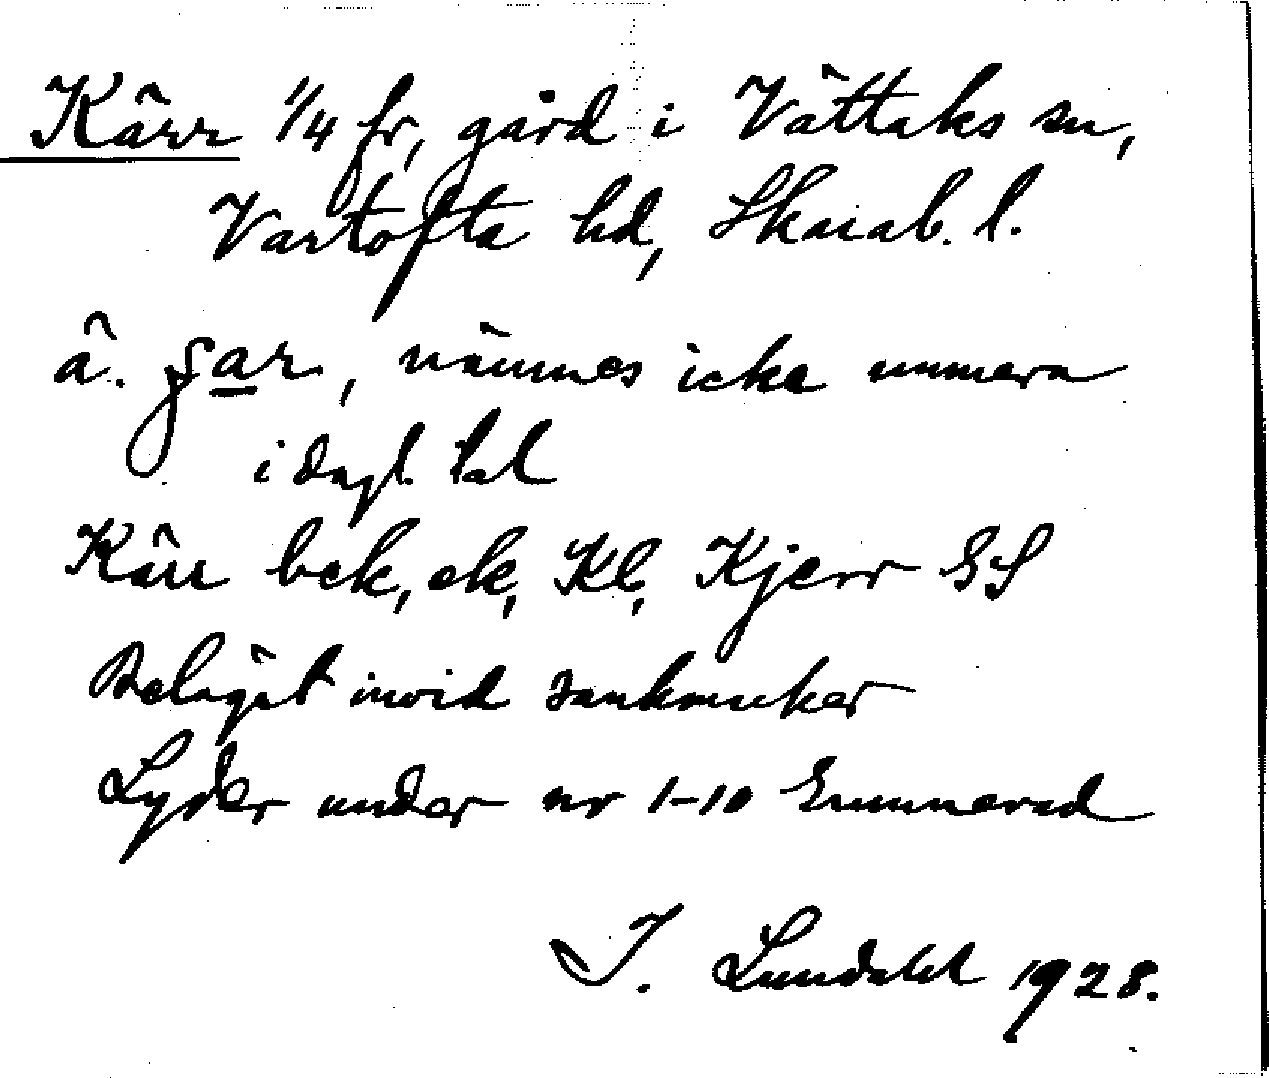 Kärr 1/4 fr, gård i Vättaks sn,
Vartofta hd, Skarab. l.
â. ʃar, nämnes icke numera
i dagl. tal
Kärr bek, ek, Kl, Kjerr GS
Beläget invid sankmarker
Lyder under nr 1-10 Grunnered
I. Lundahl 1928.